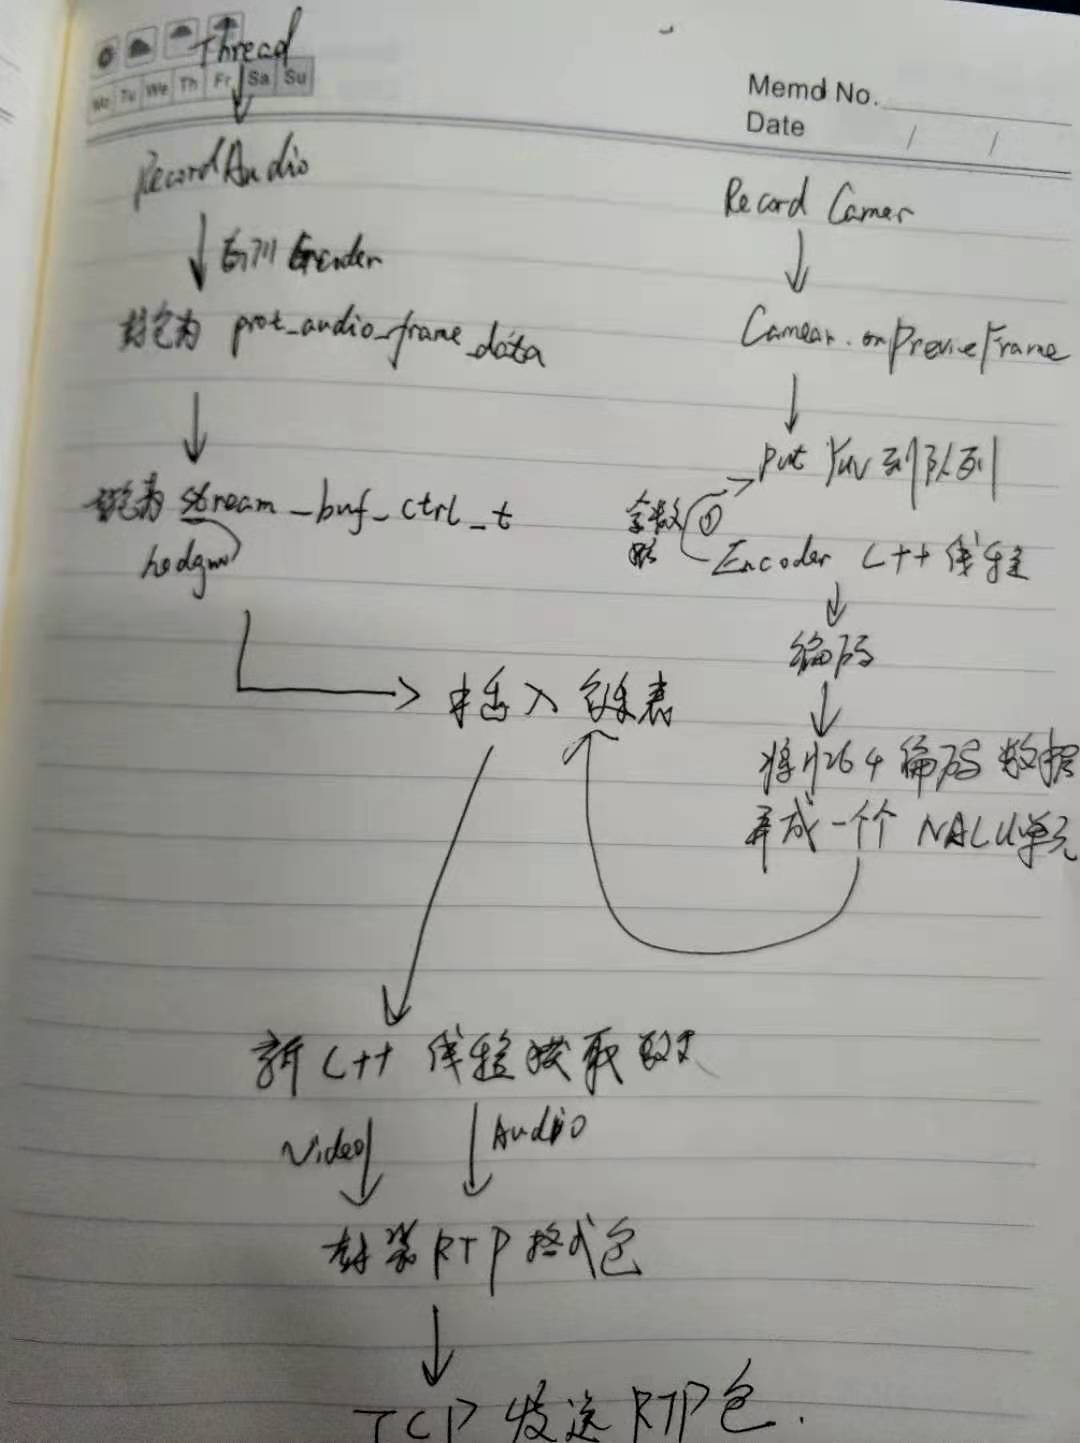 Thread
Mo Tu We Th Fr Sa Su
Memo No.
Date / /
RecordAudio
G711 Encoder
封包为 prot_audio_frame_data
封包为 stream_buf_ctrl_t
插入链表
Record Camer
Camear.onPrevieFrame
Put Yuv到队列
拿数据
①
Encoder C++ 线程
编码
将H264编码数据
弄成一个个 NALU单元
新 C++ 线程获取数据
Video
Audio
封装RTP格式包
TCP 发送 RTP包.